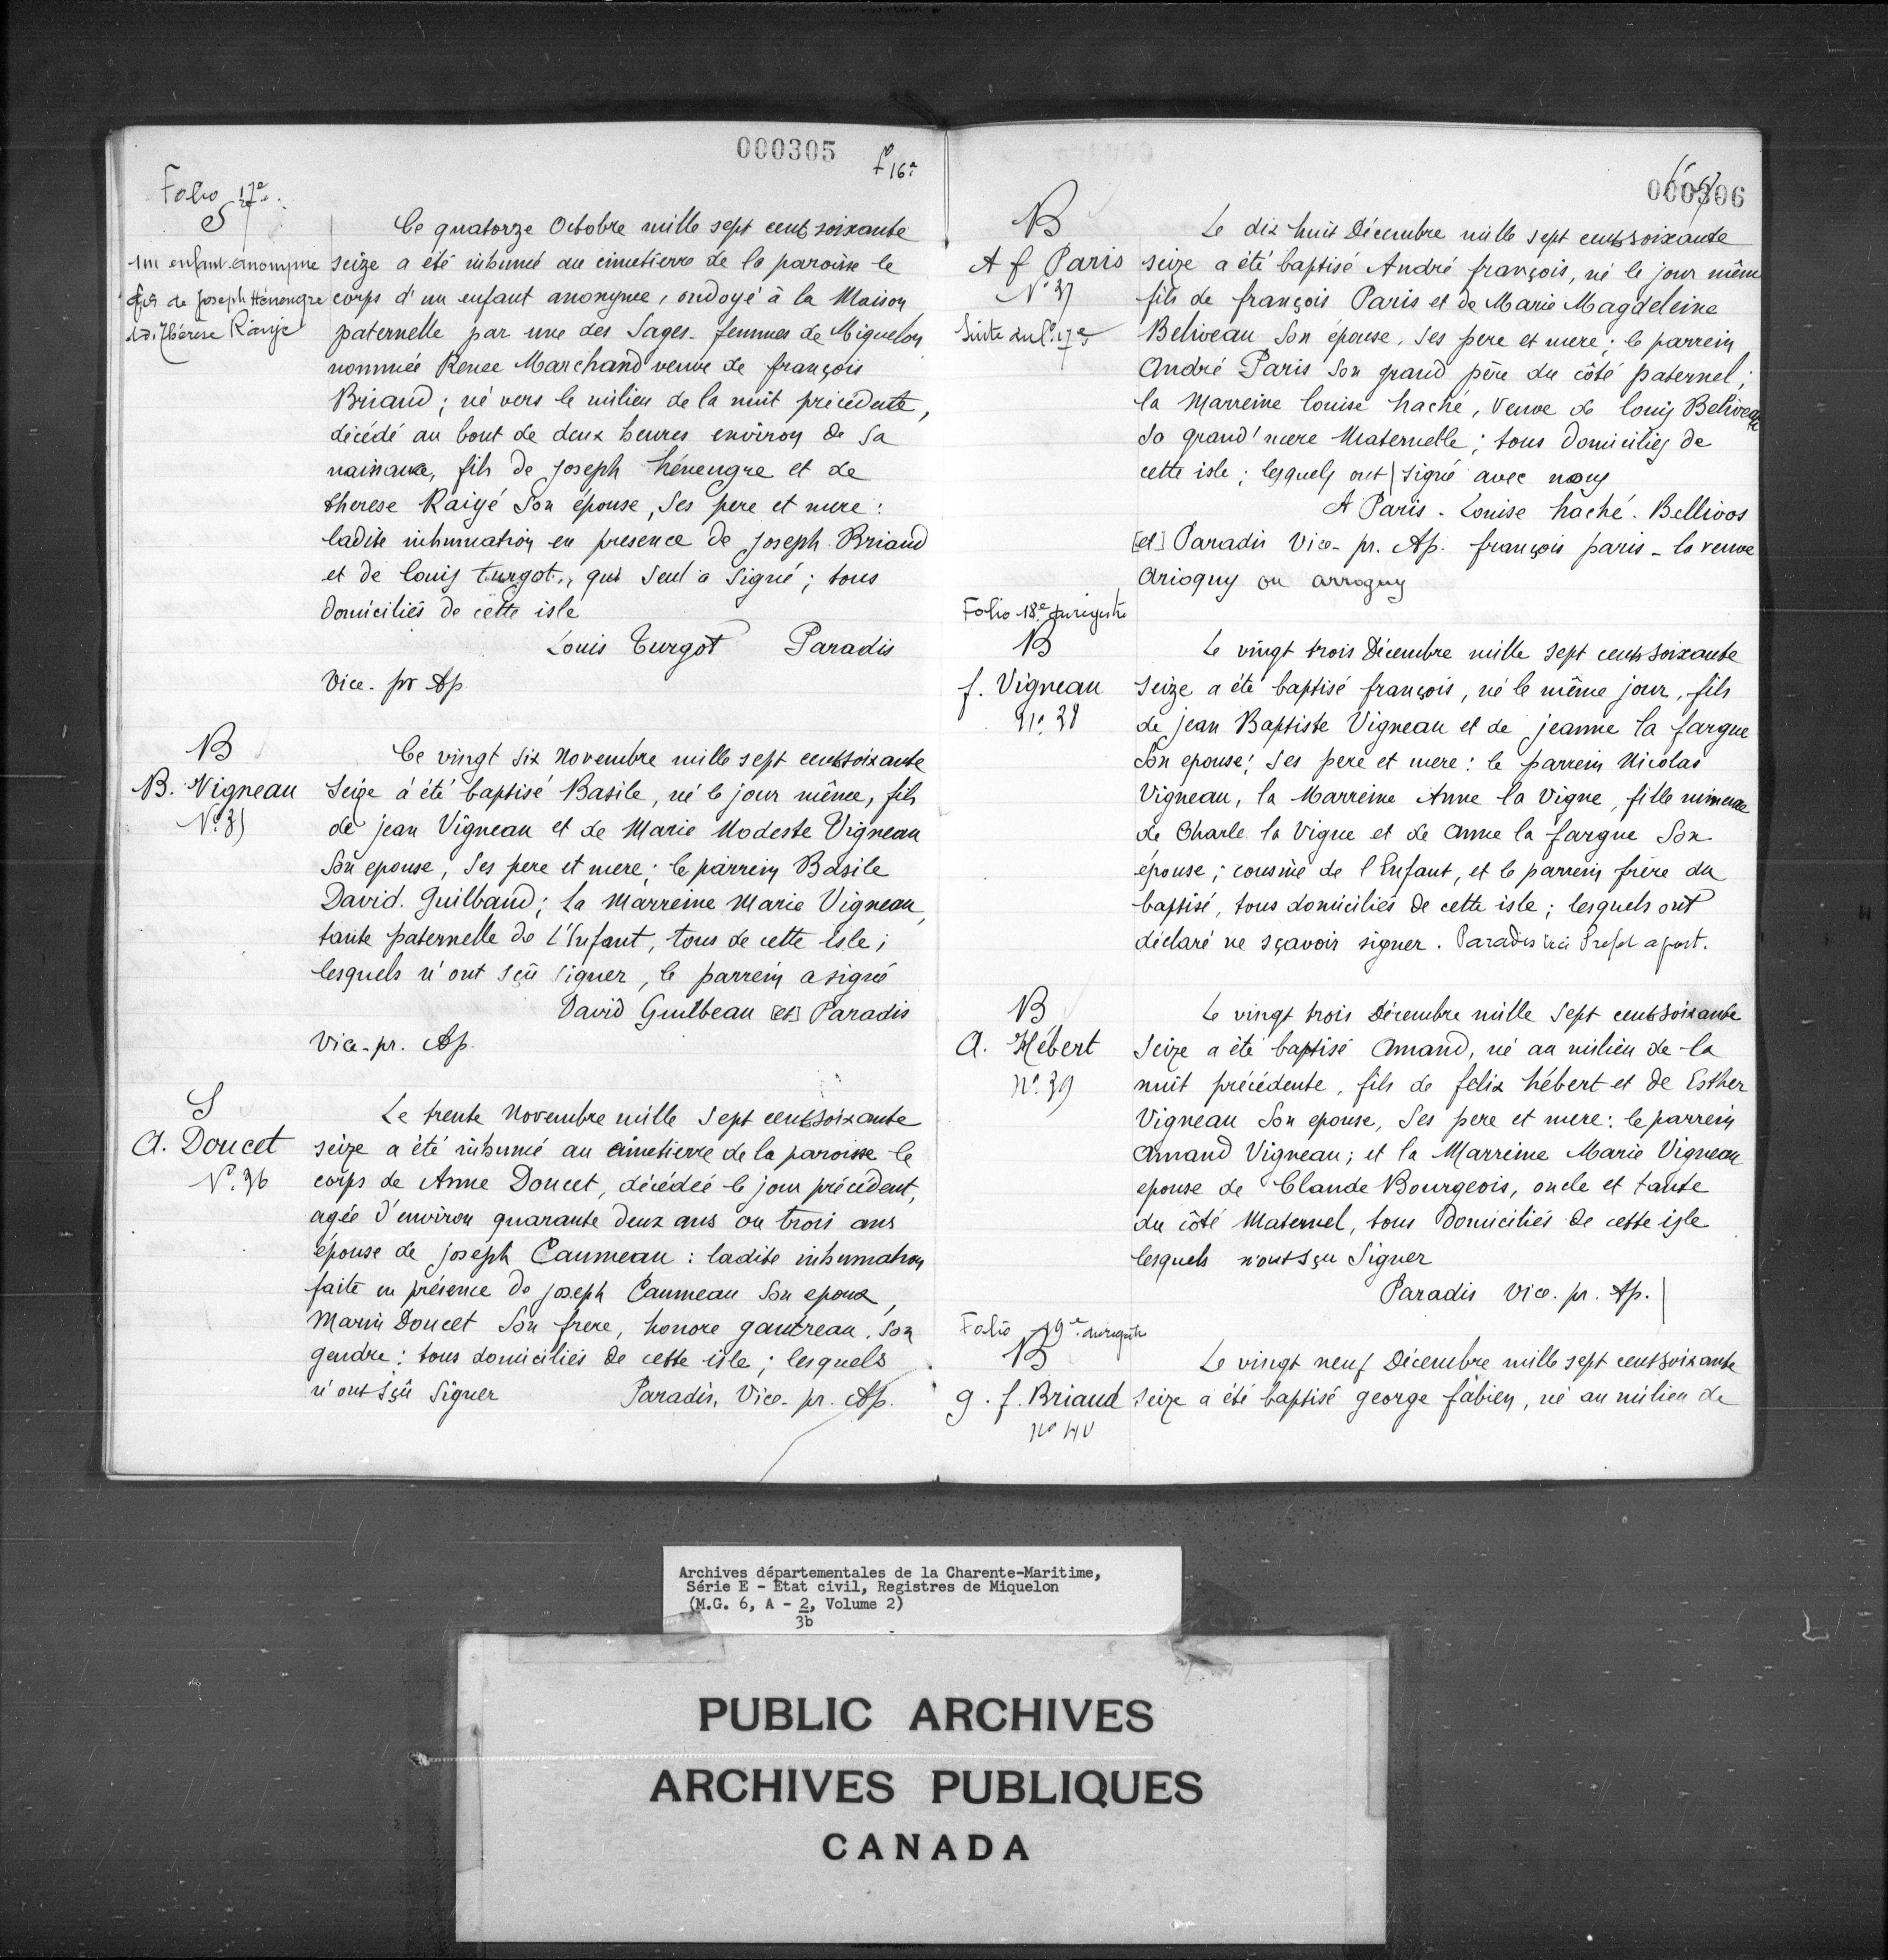 000305
fº 16e
Folio 17e
S
un enfant anonyme
fils de Joseph Hénengre
et de Thérese Raigé
Ce quatorze Octobre mille sept cent soixante
seize a été inhumé au cimetierre de la paroisse le
corps d'un enfant anonyme, ondoyé à la Maison
paternelle par une des Sages-femmes de Miquelon
nommée Renee Marchand veuve de françois
Briand ; né vers le milieu de la nuit précédente,
décédé au bout de deux heures environ de sa
naissance, fils de Joseph hénengre et de
therese Raigé Son épouse, Ses pere et mere :
ladite inhumation en presence de Joseph Briand
et de louis turgot, qui Seul a Signé ; tous
domiciliés de cette isle
Louis Turgot Paradis
Vice. pr Ap
B
B. Vigneau
Nº 35
Ce vingt Six Novembre mille sept cent soixante
Seize à été baptisé Basile, né le jour même, fils
de jean Vigneau et de Marie Modeste Vigneau
Son epouse, Ses pere et mere ; le parrein Basile
David. Guilbaud ; la Marreine Marie Vigneau,
tante paternelle de l'Enfant, tous de cette isle ;
lesquels n'ont sçû signer, le parrein a signé
David Guilbeau [et] Paradis
Vice-pr. Ap.
S
A. Doucet
Nº 36
Le trente Novembre mille Sept cent soixante
seize a été inhumé au cimetierre de la paroisse le
corps de Anne Doucet, décédée le jour précédent,
agée d'environ quarante deux ans ou trois ans
épouse de joseph Caumeau : ladite inhumation
faite en présence de joseph Caumeau Son epoux,
Marin Doucet Son frere, honore gautreau, Son
gendre : tous domiciliés de cette isle ; lesquels
n'ont sçû Signer Paradis, Vice. pr. Ap.
000306
B
A f Paris
Nº 37
Suite du fº 17e
Le dix huit Décembre mille sept cent soixante
seize a été baptisé André françois, né le jour même
fils de françois Paris et de Marie Magdeleine
Beliveau Son épouse, Ses pere et mere ; le parrein
André Paris Son grand père du côté paternel ;
la Marreine louise haché, Veuve de louis Beliveau
Sa grand'mere Maternelle ; tous domiciliés de
cette isle ; lesquels ont signé avec nous
A Paris - Louise haché. Bellivos
[et] Paradis Vice-pr. Ap. françois paris - la veuve
arioguy ou arroguy
Folio 18e du registre
B
f. Vigneau
Nº 38
Le vingt trois Décembre mille sept cent soixante
Seize a été baptisé françois, né le même jour, fils
de jean Baptiste Vigneau et de jeanne la fargue
Son epouse ; Ses pere et mere : le parrein Nicolas
Vigneau, la Marreine Anne la Vigne, fille mineure
de Charle la Vigne et de Anne la fargue Son
épouse ; cousine de l'Enfant, et le parrein frère du
baptisé, tous domiciliés de cette isle ; lesquels ont
déclaré ne sçavoir signer. Paradis Vice Préfet apost.
B
A. Hébert
Nº 39
Le vingt trois Décembre mille Sept cent soixante
Seize a été baptisé Amand, né au milieu de la
nuit précédente, fils de felix hébert et de Esther
Vigneau Son epouse, Ses pere et mere : le parrein
Amand Vigneau ; et la Marreine Marie Vigneau
epouse de Claude Bourgeois, oncle et tante
du côté Maternel, tous domiciliés de cette isle
lesquels n'ont sçu Signer
Paradis Vice. pr. Ap.
Folio 19e du registre
B
g. f. Briand
Nº 40
Le vingt neuf Décembre mille sept cent soixante
Seize a été baptisé george fabien, né au milieu de
Archives départementales de la Charente-Maritime,
Série E - Etat civil, Registres de Miquelon
(M.G. 6, A - 2, Volume 2)
3b
PUBLIC ARCHIVES
ARCHIVES PUBLIQUES
CANADA